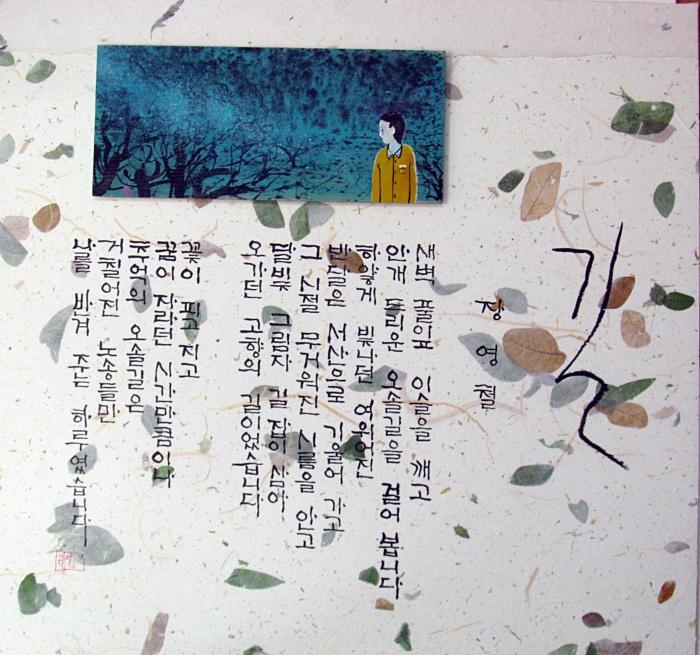 길
장영철
새벽 풀잎 이슬을 깨고
안개 드리운 오솔길을 걸어 봅니다
하얗게 빛나던 여위어진
반달을 서산으로 기울어 가고
그 시절 무거워진 시름을 안고
달빛 그림자 길 잡이 삼아
오가던 고행의 길이었습니다
꽃이 피고 지고
꿈이 자라던 시간만큼이나
추억의 오솔길은
거칠어진 노송들만
나를 반겨 주는 하루였습니다